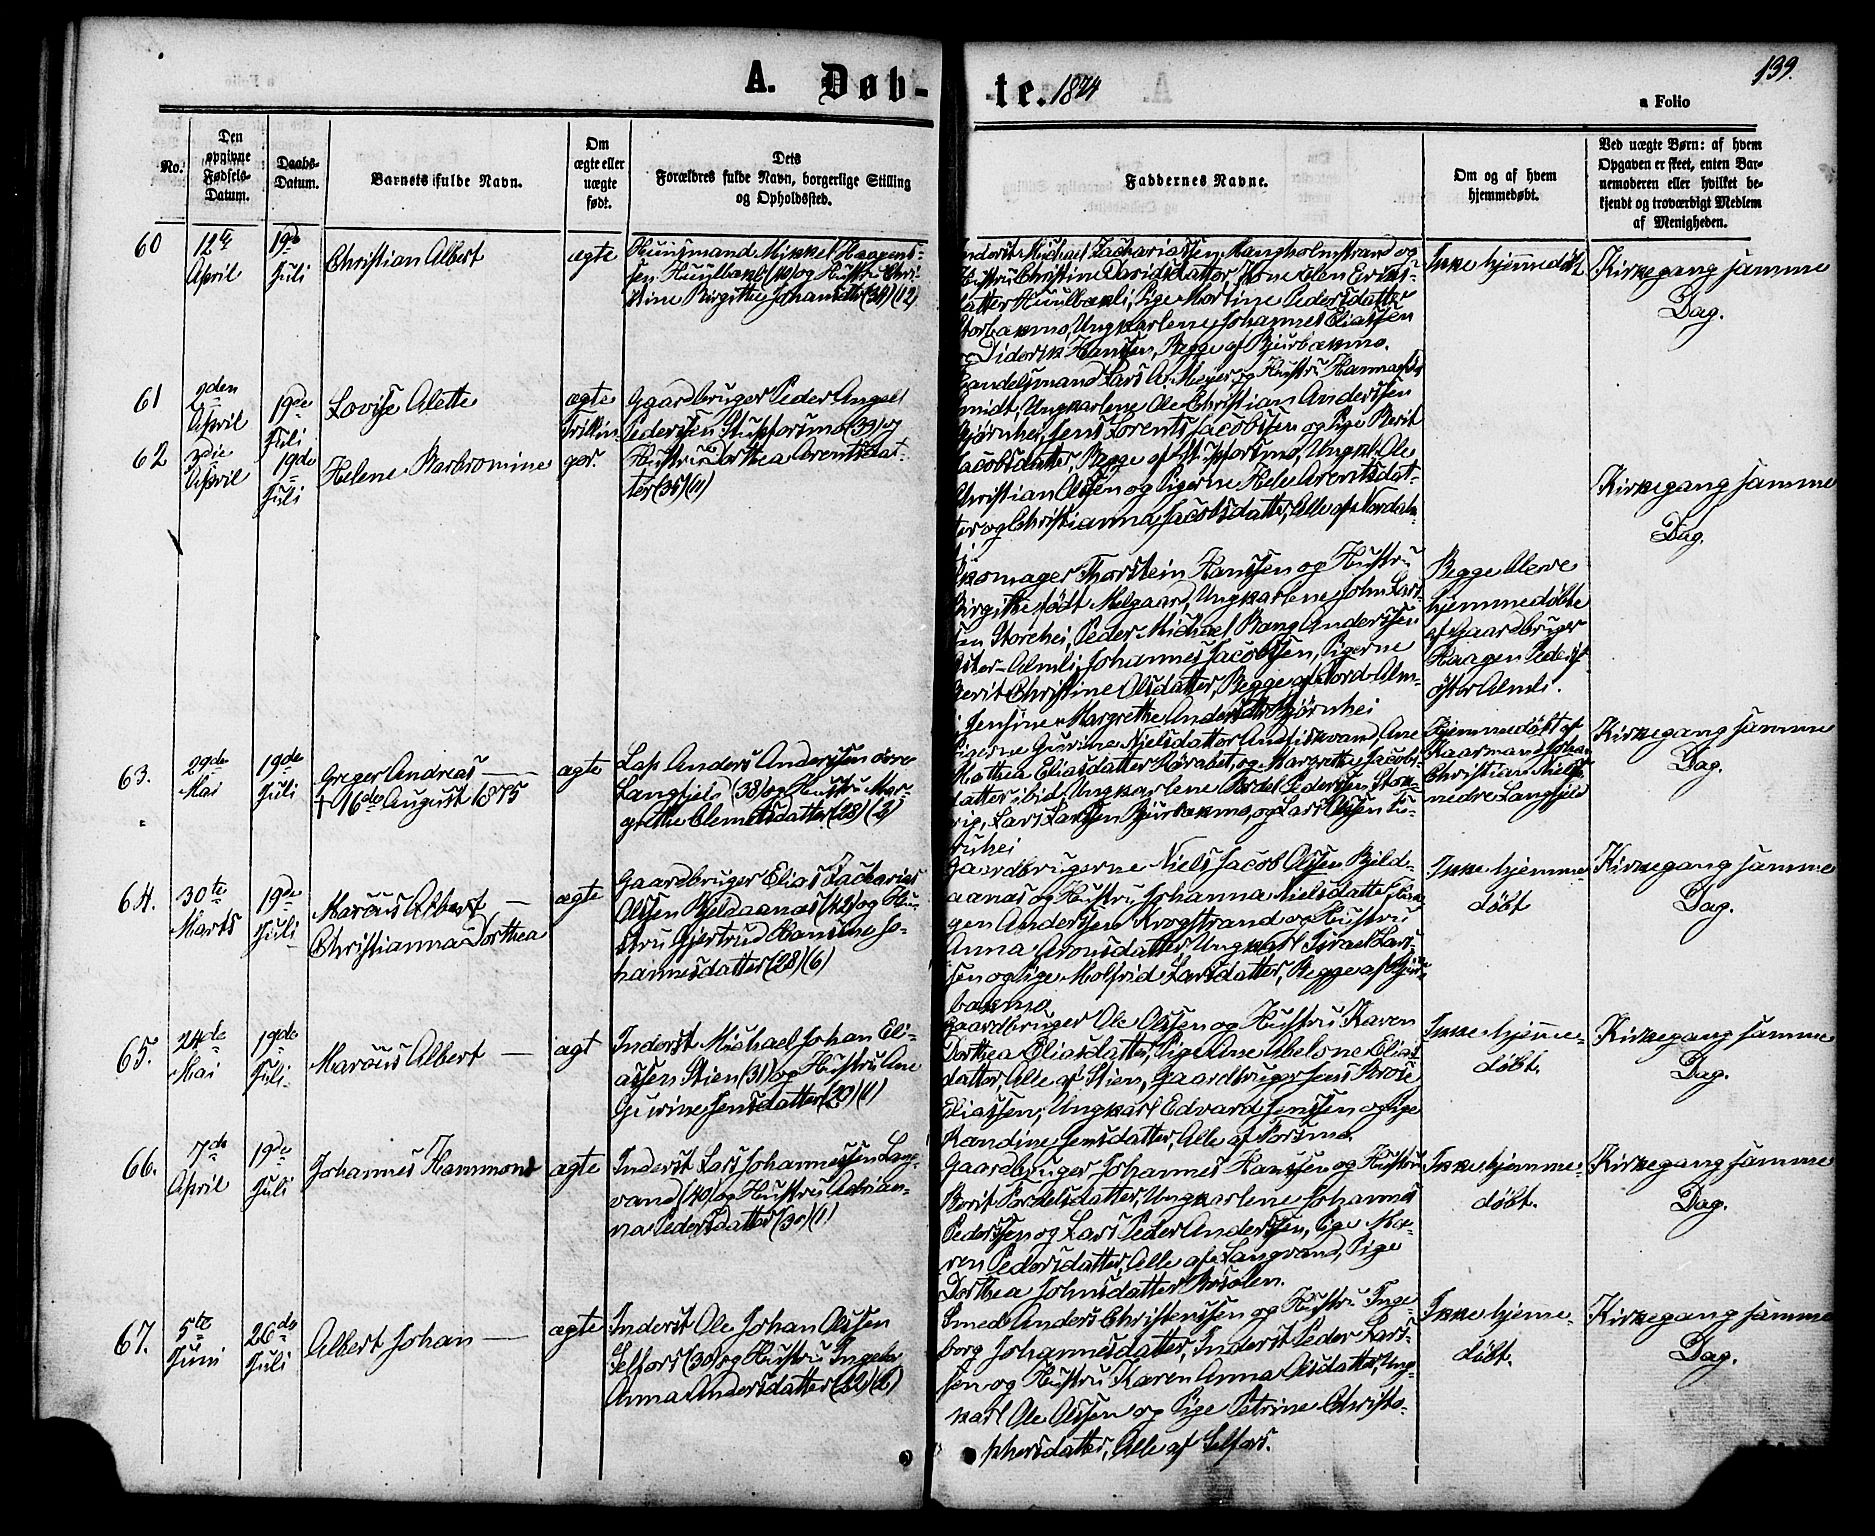 139.
A. Døb- te. 1874
a Folio
No.
Den opgivne Fødsels-Datum.
Daabs-Datum.
Barnets fulde Navn.
Om ægte eller uægte født.
Dets Forældres fulde Navn, borgerlige Stilling og Opholdssted.
Faddernes Navne.
Om og af hvem hjemmedøbt.
Ved uægte Børn: af hvem Opgaven er skeet, enten Barnemoderen eller hvilket bekjendt og troværdigt Medlem af Menigheden.
60
12te April
19de Juli
Christian Albert
ægte
Huusmand Mikkel Haagens-
sen Huulbækli (40) og Hustru Chri-
stine Birgitte Johansdtter (34) (12)
Inderst Michael Zachariassen, Langholmstrand og
Hustru Christine Davidsdatter, Kone Elen Eriks-
datter Huulbækli, Pige Martine Pedersdatter
Storbækmo, Ungkarlene Johannes Eliassen
og Diderik Hanssen, Begge af Bjurbækmo.
Ikke hjemmedøbt
Kirkegang samme
Dag.
61
2den April
19de Juli
Lovise Alette
ægte
Trillin-
Gaardbruger Peder Angell
Pederssen Stupforsmo (39) og
Handelsmand Lars A. Meyer og Hustru Hanna født
Smidt, Ungkarlene Ole Christian Anderssen
Bjørnhei, Jens Lorents Jacobssen og Pige Berit
62
3die April
19de Juli
Helene Barbromine
ger.
Hustru Dorthea Arentsdat-
ter (35) (11)
Jacobsdatter, Begge af Stupforsmo, Ungkl. Ole
Christian Olssen og Pigerne Hele Arentsdat-
ter og Christianna Jacobsdatter, Alle af Nordalm-
li
Kirkegang samme
Dag.
Skomager Thorstein Hanssen og Hustru
Birgitte født Melgaard, Ungkarlene John Lars-
sen Storehei, Peder Michael Bang Anderssen
Øster-Almli, Johannes Jacobssen, Pigerne
Berit Christine Olsdatter, Begge af Nord-Alm-
li Jensine Margrethe Andersdtr Bjørnhei
Begge Eleve
hjemmedøbte
af Gaardbruger
Haagen Peders.
øster Almli.
63.
29de Mai
19de Juli
Greger Andreas
† 16de August 1875
ægte
Lap Anders Anderssen øvre
Langfjeld (38) og Hustru Mar-
grethe Clemetsdatter (28) (2)
Pigerne Gurine Nielsdatter Andfiskvand, Ane
Mathea Eliasdatter Kårabet, og Margrethe Jacobs-
datter ibid, Ungkarlene Pordel Pederssen Stok-
rig, Lars Larssen Bjurbækmo, og Lars Olssen Tu-
ruhei
Hjemmedøbt af
Gaarmand Johan
Christian Nielss.
nedre Langfjeld
Kirkegang samme
Dag.
64.
30te Marts
19de Juli
Marcus Albert
Christianna Dorthea
ægte
Gaardbruger Elias Zacharias
Olssen Bjeldaanæs (42) og Hu-
stru Gjertrud Hansine Jo-
hannesdatter (28) (6)
Gaardbrugerne Niels Jacob Olssen Bjeld-
aanæs og Hustru Johanna Nielsdatter, Haa-
gen Anderssen Krogstrand og Hustru
Anna Aronsdatter, Ungkarl Israel Lars-
sen og Pige Molfrid Larsdatter, Begge af Bjur-
bækmo
Ikke hjemme-
døbt
Kirkegang samme
Dag.
65.
24de Mai
19de Juli
Marcus Albert
ægt
Inderst Michael Johan Eli-
assen Stien (31) og Hustru Ane
Gurine Jensdatter (29) (1)
Gaardbruger Ole Olssen og Hustru Karen
Dorthea Eliasdatter, Pige Ane Abelone Elias-
datter, Alle af Stien, Gaardbruger Jens Brose
Eliassen, Ungkarl Edvard Jenssen og Pige
Randine Jensdatter, Alle af Porsmo.
Ikke hjemme-
døbt.
Kirkegang samme
Dag.
66.
7de April
19de Juli
Johannes Hammond
ægte
Inderst Lars Johannessen Lang-
vand (40) og Hustru Adrian-
na Pedersdatter (30) (1)
Gaardbruger Johannes Hanssen og Hustru
Berit Pordelsdatter, Ungkarlene Johannes
Pederssen og Lars Peder Anderssen, Pige Ma-
ren Pedersdatter, Alle af Langvand, Pige
Dorthea Johnsdatter Røsdlen.
Ikke hjemme-
døbt.
Kirkegang samme
Dag.
67.
5te Juni
26de Juli
Albert Johan
ægte
Inderst Ole Johan Olssen
Selfors (30) og Hustru Ingebr.
Anna Andersdatter (22) (2)
Smed Anders Christenssen og Hustru Inge-
borg Johannesdatter, Inderst Peder Lars-
sen og Hustru Karen Anna Olsdatter, Ung-
karl Ole Olssen og Pige Petrine Christo-
phersdatter, Alle af Selfors.
Ikke hjeme-
døbt.
Kirkegang samme
Dag.